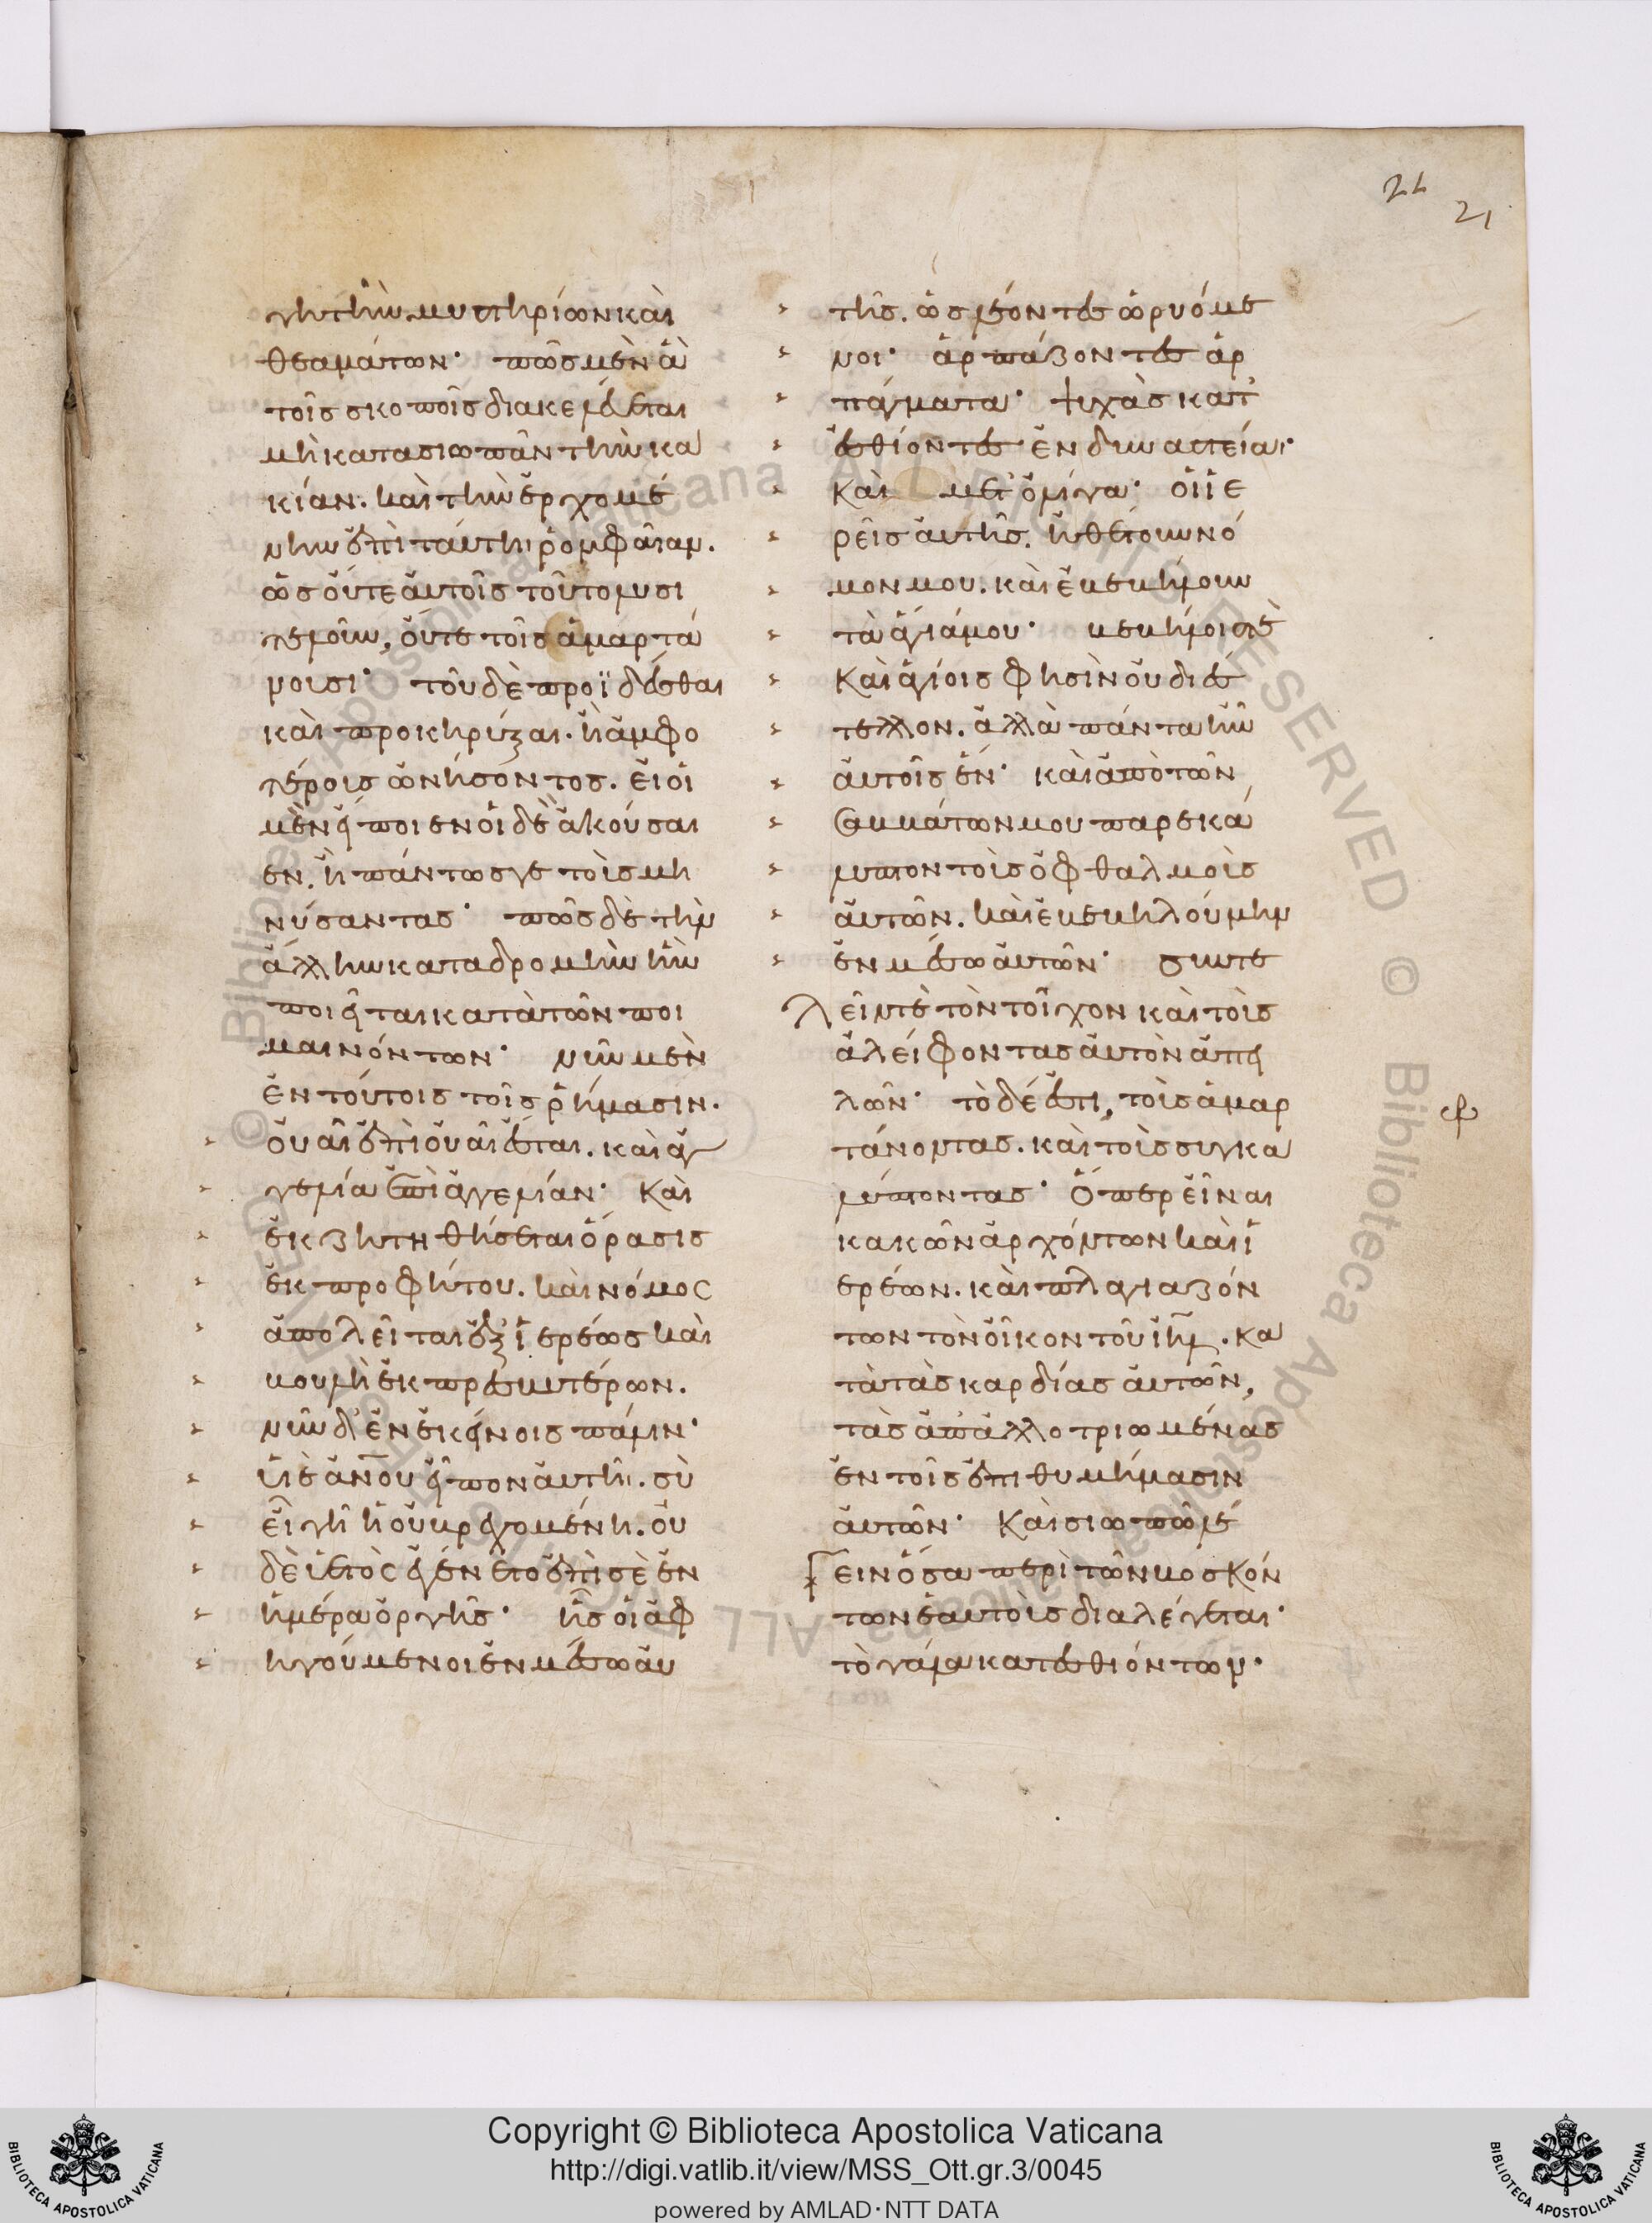 22
21
γητὴν μυστηρίων καὶ
θεαμάτων· πῶς μὲν ἂ
τοῖς σκοποῖς διακελεύεται
μὴ κατασιωπᾶν τὴν κα
κίαν. καὶ τὴν ἐρχομέ
νην ἐπὶ ταύτηι ῥομφαίαν.
ὡς οὔτε αὐτοῖς τοῦτο λυσι
τελοῦν, οὔτε τοῖς ἁμαρτά
νουσι· τοῦ δὲ προϊδέσθαι
καὶ προκηρύξαι. ἢ ἀμφο
τέροις ὠνήσοντος. εἰ οἱ
μὲν εἴποιεν οἱ δὲ ἀκούσαι
εν. ἢ πάντως γε τοὺς μη
νύσαντας· πῶς δὲ τὴν
ἄλλην καταδρομὴν ἣν
ποιεῖται κατὰ τῶν ποι
μαινόντων· νῦν μὲν
ἐν τούτοις τοῖς ῥήμασιν.
οὐαὶ ἐπὶ οὐαὶ ἔσται. καὶ ἀγ
γελία ἐπὶ ἀγγελίαν· Καὶ
ἐκζητηθήσεται ὅρασις
ἐκ προφήτου. καὶ νόμος
ἀπολεῖται ἐξ ἱερέως καὶ
βουλὴ ἐκ πρεσβυτέρων.
νῦν δ' ἐν ἐκείνοις πάλιν·
υἱὲ ἀνου εἶπον αὐτῆι. σὺ
εἶ γῆ ἡ οὐ βρεχομένη. οὐ
δὲ ὑετὸς ἐγένετο ἐπὶ σὲ ἐν
ἡμέρα ὀργῆς· ἧς οἱ ἀφ
ηγούμενοι ἐν μέσω αὐ
τῆς. ὡς λέοντες ὠρυόμε
νοι· ἁρπάζοντες ἁρ
πάγματα· ψυχὰς κατ
εσθίοντες ἐν δυναστεία·
Καὶ μετ' ὀλίγα· οἱ ἱε
ρεῖς αὐτῆς. ἠθέτουν νό
μον μου. καὶ ἐβεβήλουν
τὰ ἅγιά μου· βεβήλοις δὲ
Καὶ ἁγίοις φησὶν οὐ διέ
τελλον. ἀλλὰ πάντα ἦν
αὐτοῖς ἕν· καὶ ἀπὸ τῶν
σαββάτων μου παρεκά
λυπτον τοὺς ὀφθαλμοὺς
αὐτῶν. καὶ ἐβεβηλούμην
ἐν μέσω αὐτῶν· συντε
λεῖν τὲ τὸν τοῖχον καὶ τοὺς
ἀλείφοντας αὐτὸν ἀπει
λῶν· τὸ δέ ἐστι, τοὺς ἁμαρ
τάνοντας. καὶ τοὺς συγκα
λύπτοντας· Ὅπερ εἶναι
κακῶν ἀρχόντων καὶ ἱ
ερέων. καὶ πλαγιαζόν
των τὸν οἶκον τοῦ ιηλ. κα
τὰ τὰς καρδίας αὐτῶν,
τὰς ἀπαλλοτριωμένας
ἐν τοῖς ἐπιθυμήμασιν
αὐτῶν· Καὶ σιωπῶ λέ
γειν ὅσα περὶ τῶν βοσκόν
των ἑαυτοὺς διαλέγεται·
τὸ γάλα κατεσθιόντων·
Copyright © Biblioteca Apostolica Vaticana
http://digi.vatlib.it/view/MSS_Ott.gr.3/0045
powered by AMLAD·NTT DATA
BIBLIOTECA APOSTOLICA VATICANA
BIBLIOTECA APOSTOLICA VATICANA